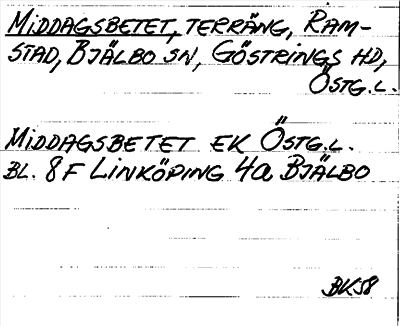 MIDDAGSBETET, TERRÄNG, RAM-
STAD, BJÄLBO SN, GÖSTRINGS HD,
ÖSTG.L.
MIDDAGSBETET EK ÖSTG.L.
BL. 8F LINKÖPING 4a BJÄLBO
BK58